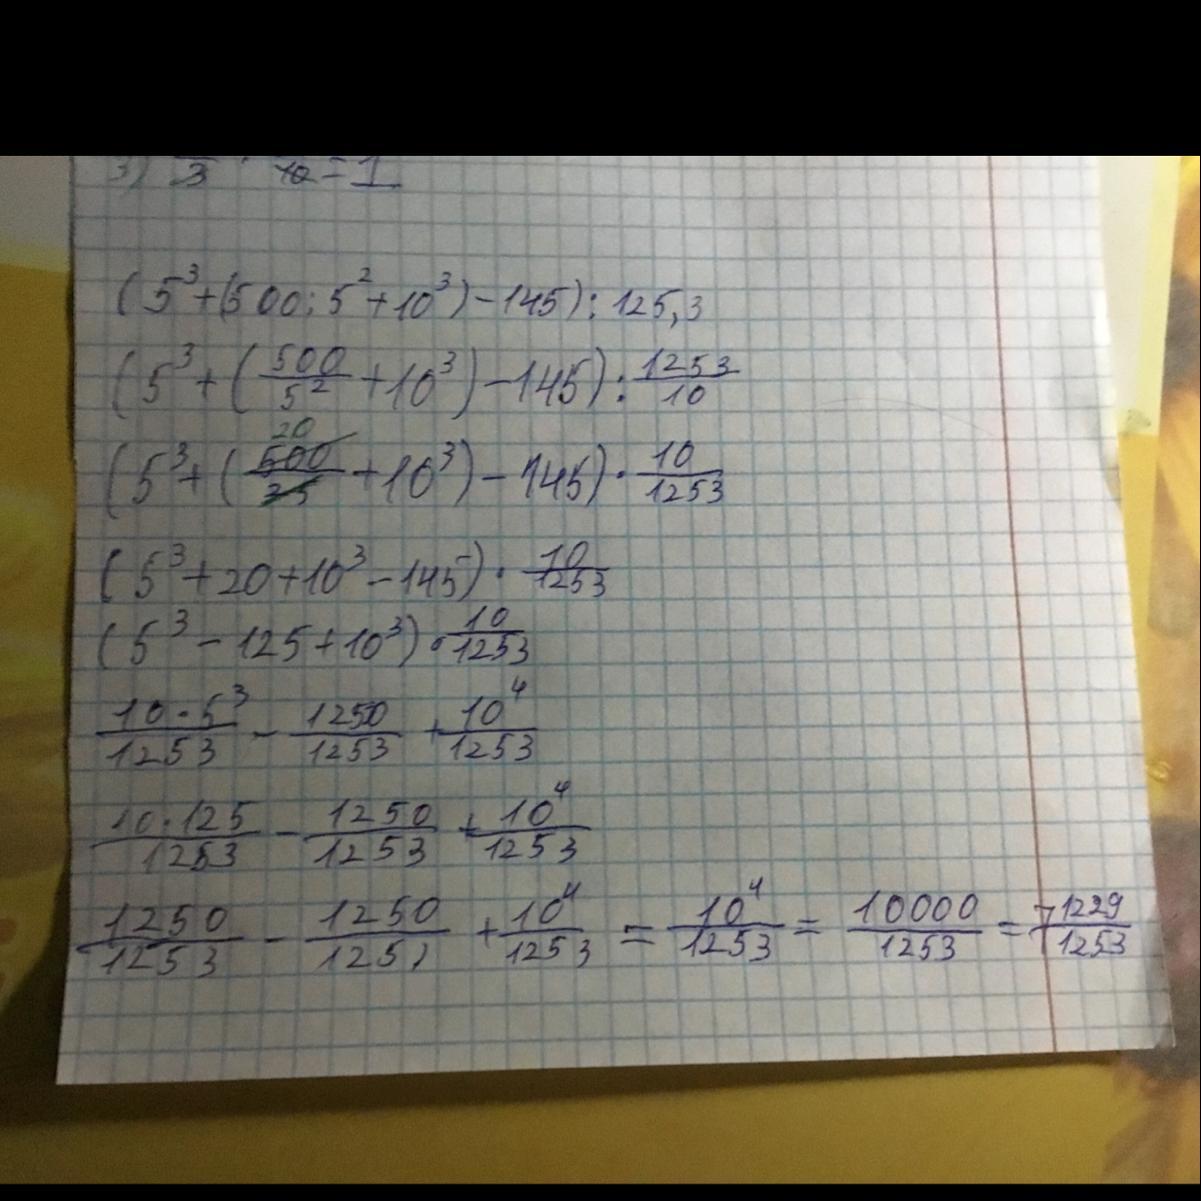 3) /3 · /10 = 1
(5³+(500:5²+10³)-145):125,3
(5³+(500/5²+10³)-145):1253/10
20
(5³+(500/25+10³)-145)·10/1253
(5³+20+10³-145)·10/1253
(5³-125+10³)·10/1253
10·5³/1253 - 1250/1253 + 10⁴/1253
10·125/1253 - 1250/1253 + 10⁴/1253
1250/1253 - 1250/1253 + 10⁴/1253 = 10⁴/1253 = 10000/1253 = 7 1229/1253